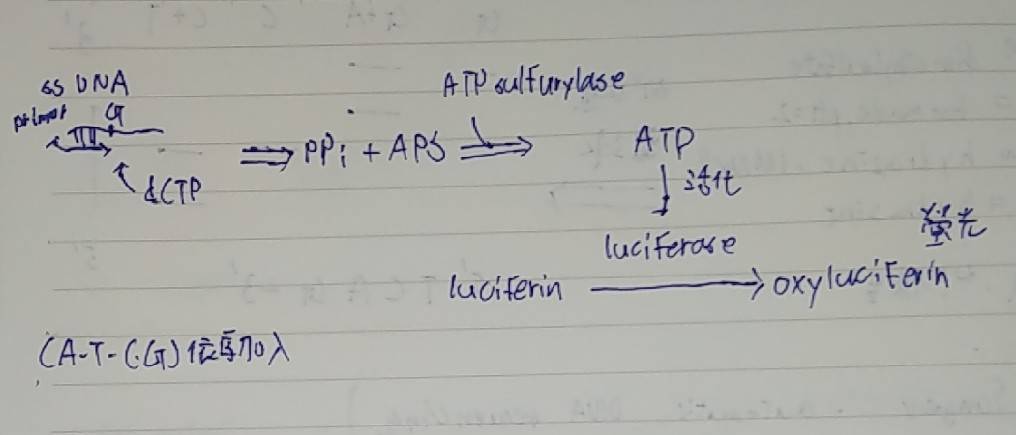 ss DNA
primer G
dCTP
ATP sulfurylase
⇒ PPi + APS ⇒ ATP
↓ 活化
luciferase
螢光
luciferin → oxyluciferin
(A-T-C-G) 依序加入